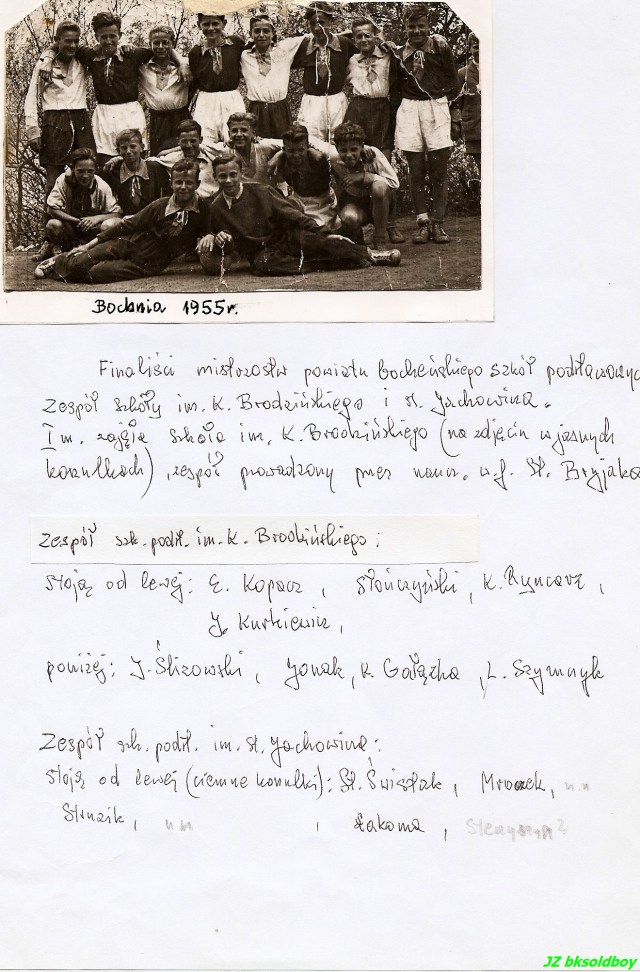 Bochnia 1955r.
Finaliści mistrzostw powiatu bocheńskiego szkół podstawowych
Zespół szkoły im. K. Brodzińskiego i st. Jachowicza.
I m. zajęła szkoła im. K. Brodzińskiego (na zdjęciu w jasnych
koszulkach), zespół prowadzony przez naucz. w.f. St. Bryjaka
Zespół szk. podst. im. K. Brodzińskiego:
stoją od lewej: E. Kopacz, Słończyński, K. Ryncarz,
J. Kurkiewicz,
poniżej: J. Ślizowski, Jonak, K. Gałązka, L. Szymczyk
Zespół szk. podst. im. st. Jachowicza:
stoją od lewej (ciemne koszulki): St. Świstak, Mroczek, n.n
Struzik, nn , Łakoma,
JZ bksoldboy